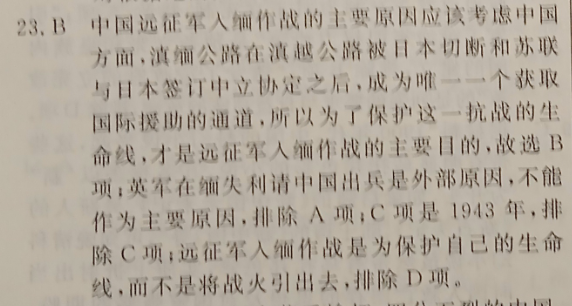 23. B 中国远征军入缅作战的主要原因应该考虑中国
方面,滇缅公路在滇越公路被日本切断和苏联
与日本签订中立协定之后,成为唯一一个获取
国际援助的通道,所以为了保护这一抗战的生
命线,才是远征军入缅作战的主要目的,故选 B
项;英军在缅失利请中国出兵是外部原因,不能
作为主要原因,排除 A 项;C 项是 1943 年,排
除 C 项;远征军入缅作战是为保护自己的生命
线,而不是将战火引出去,排除 D 项。